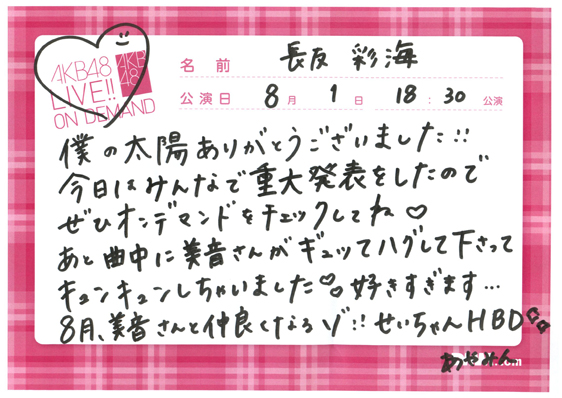 AKB48
LIVE!!
ON DEMAND
AKB
48
名前 長友 彩海
公演日 8月 1日 18:30 公演
僕の太陽ありがとうございました!!
今日はみんなで重大発表をしたので
ぜひオンデマンドをチェックしてね♡
あと曲中に美音さんがギュッてハグして下さって
キュンキュンしちゃいました♡好きすぎます…
8月、美音さんと仲良くなるゾ!! せいちゃんHBD
あやみん
.com